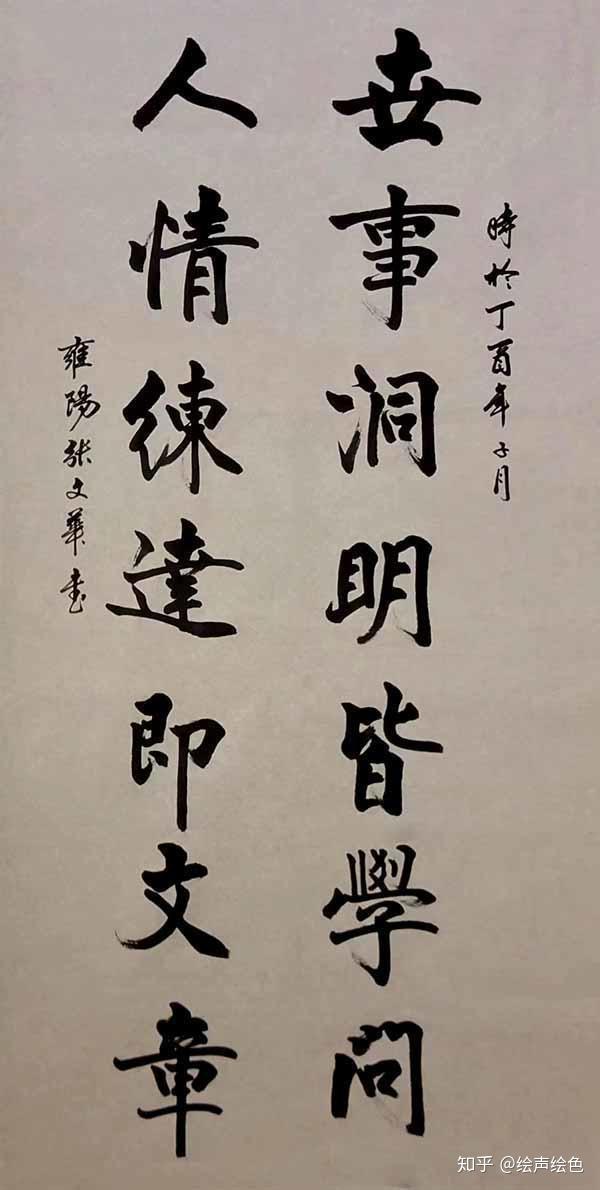 時於丁酉年子月
世事洞明皆學問
人情練達即文章
雍陽张文華書
知乎 @绘声绘色